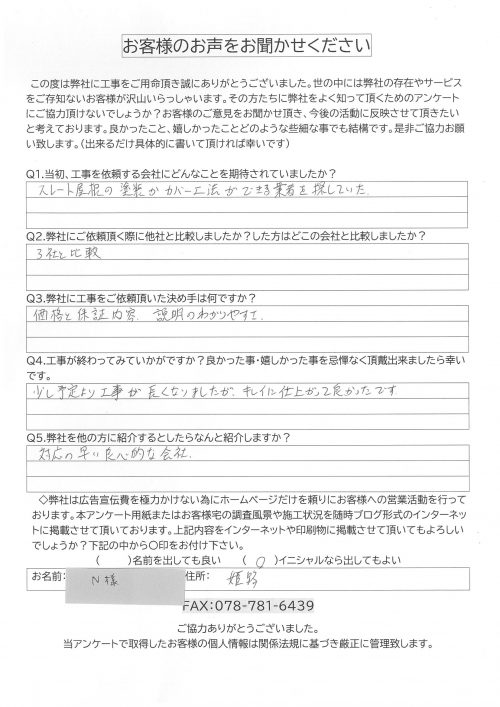 お客様のお声をお聞かせください
この度は弊社に工事をご用命頂き誠にありがとうございました。世の中には弊社の存在やサービス
をご存知ないお客様が沢山いらっしゃいます。その方たちに弊社をよく知って頂くためのアンケート
にご協力頂けないでしょうか？お客様のご意見をお聞かせ頂き、今後の活動に反映させて頂きたい
と考えております。良かったこと、嬉しかったことどのような些細な事でも結構です。是非ご協力お願
い致します。（出来るだけ具体的に書いて頂ければ幸いです）
Q1.当初、工事を依頼する会社にどんなことを期待されていましたか？
スレート屋根の塗装かカバー工法ができる業者を探していた.
Q2.弊社にご依頼頂く際に他社と比較しましたか？した方はどこの会社と比較しましたか？
3社と比較
Q3.弊社に工事をご依頼頂いた決め手は何ですか？
価格と保証内容. 説明のわかりやすさ.
Q4.工事が終わってみていかがですか？良かった事・嬉しかった事を忌憚なく頂戴出来ましたら幸い
です。
少し予定より工事が長くなりましたが、キレイに仕上がって良かったです
Q5.弊社を他の方に紹介するとしたらなんと紹介しますか？
対応の早い良心的な会社.
◇弊社は広告宣伝費を極力かけない為にホームページだけを頼りにお客様への営業活動を行って
おります。本アンケート用紙またはお客様宅の調査風景や施工状況を随時ブログ形式のインターネッ
トに掲載させて頂いております。上記内容をインターネットや印刷物に掲載させて頂いてもよろしい
でしょうか？下記の中から〇印をお付け下さい。
（　　）名前を出しても良い　（ ○ ）イニシャルなら出してもよい
お名前: N様 住所: 姫路
FAX:078-781-6439
ご協力ありがとうございました。
当アンケートで取得したお客様の個人情報は関係法規に基づき厳正に管理致します。